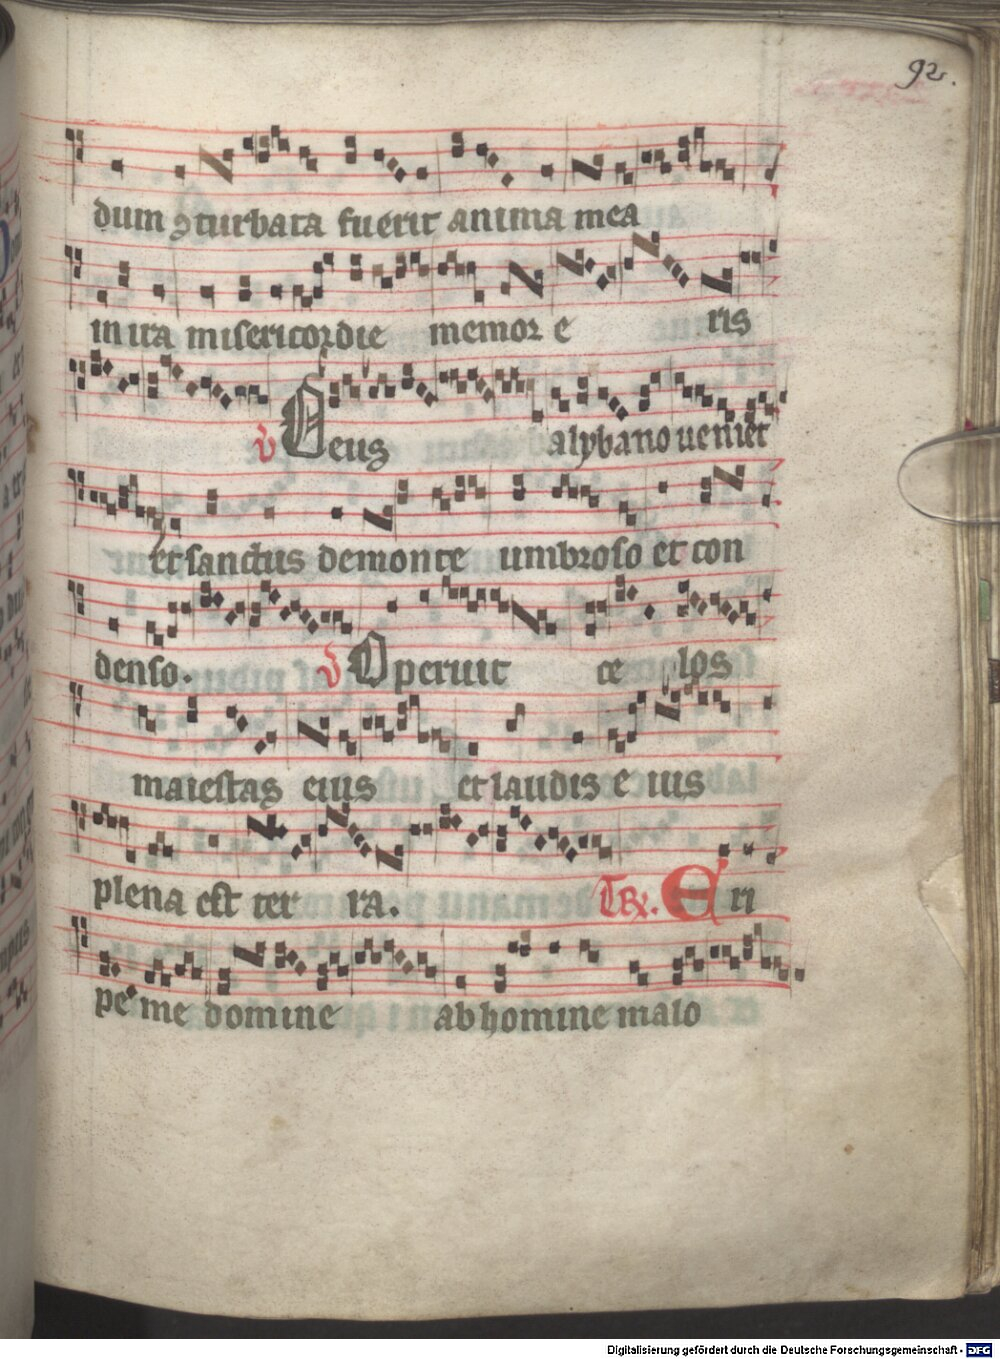 92.
dum ꝯturbata fuerit anima mea
in ira misericordie memor e ris
v Deus a lybano ueniet
et sanctus de monte umbroso et con
denso. v Operuit ce los
maiestas eius et laudis e ius
plena est ter ra. Tr. Eri
pe me domine ab homine malo
Digitalisierung gefördert durch die Deutsche Forschungsgemeinschaft - DFG